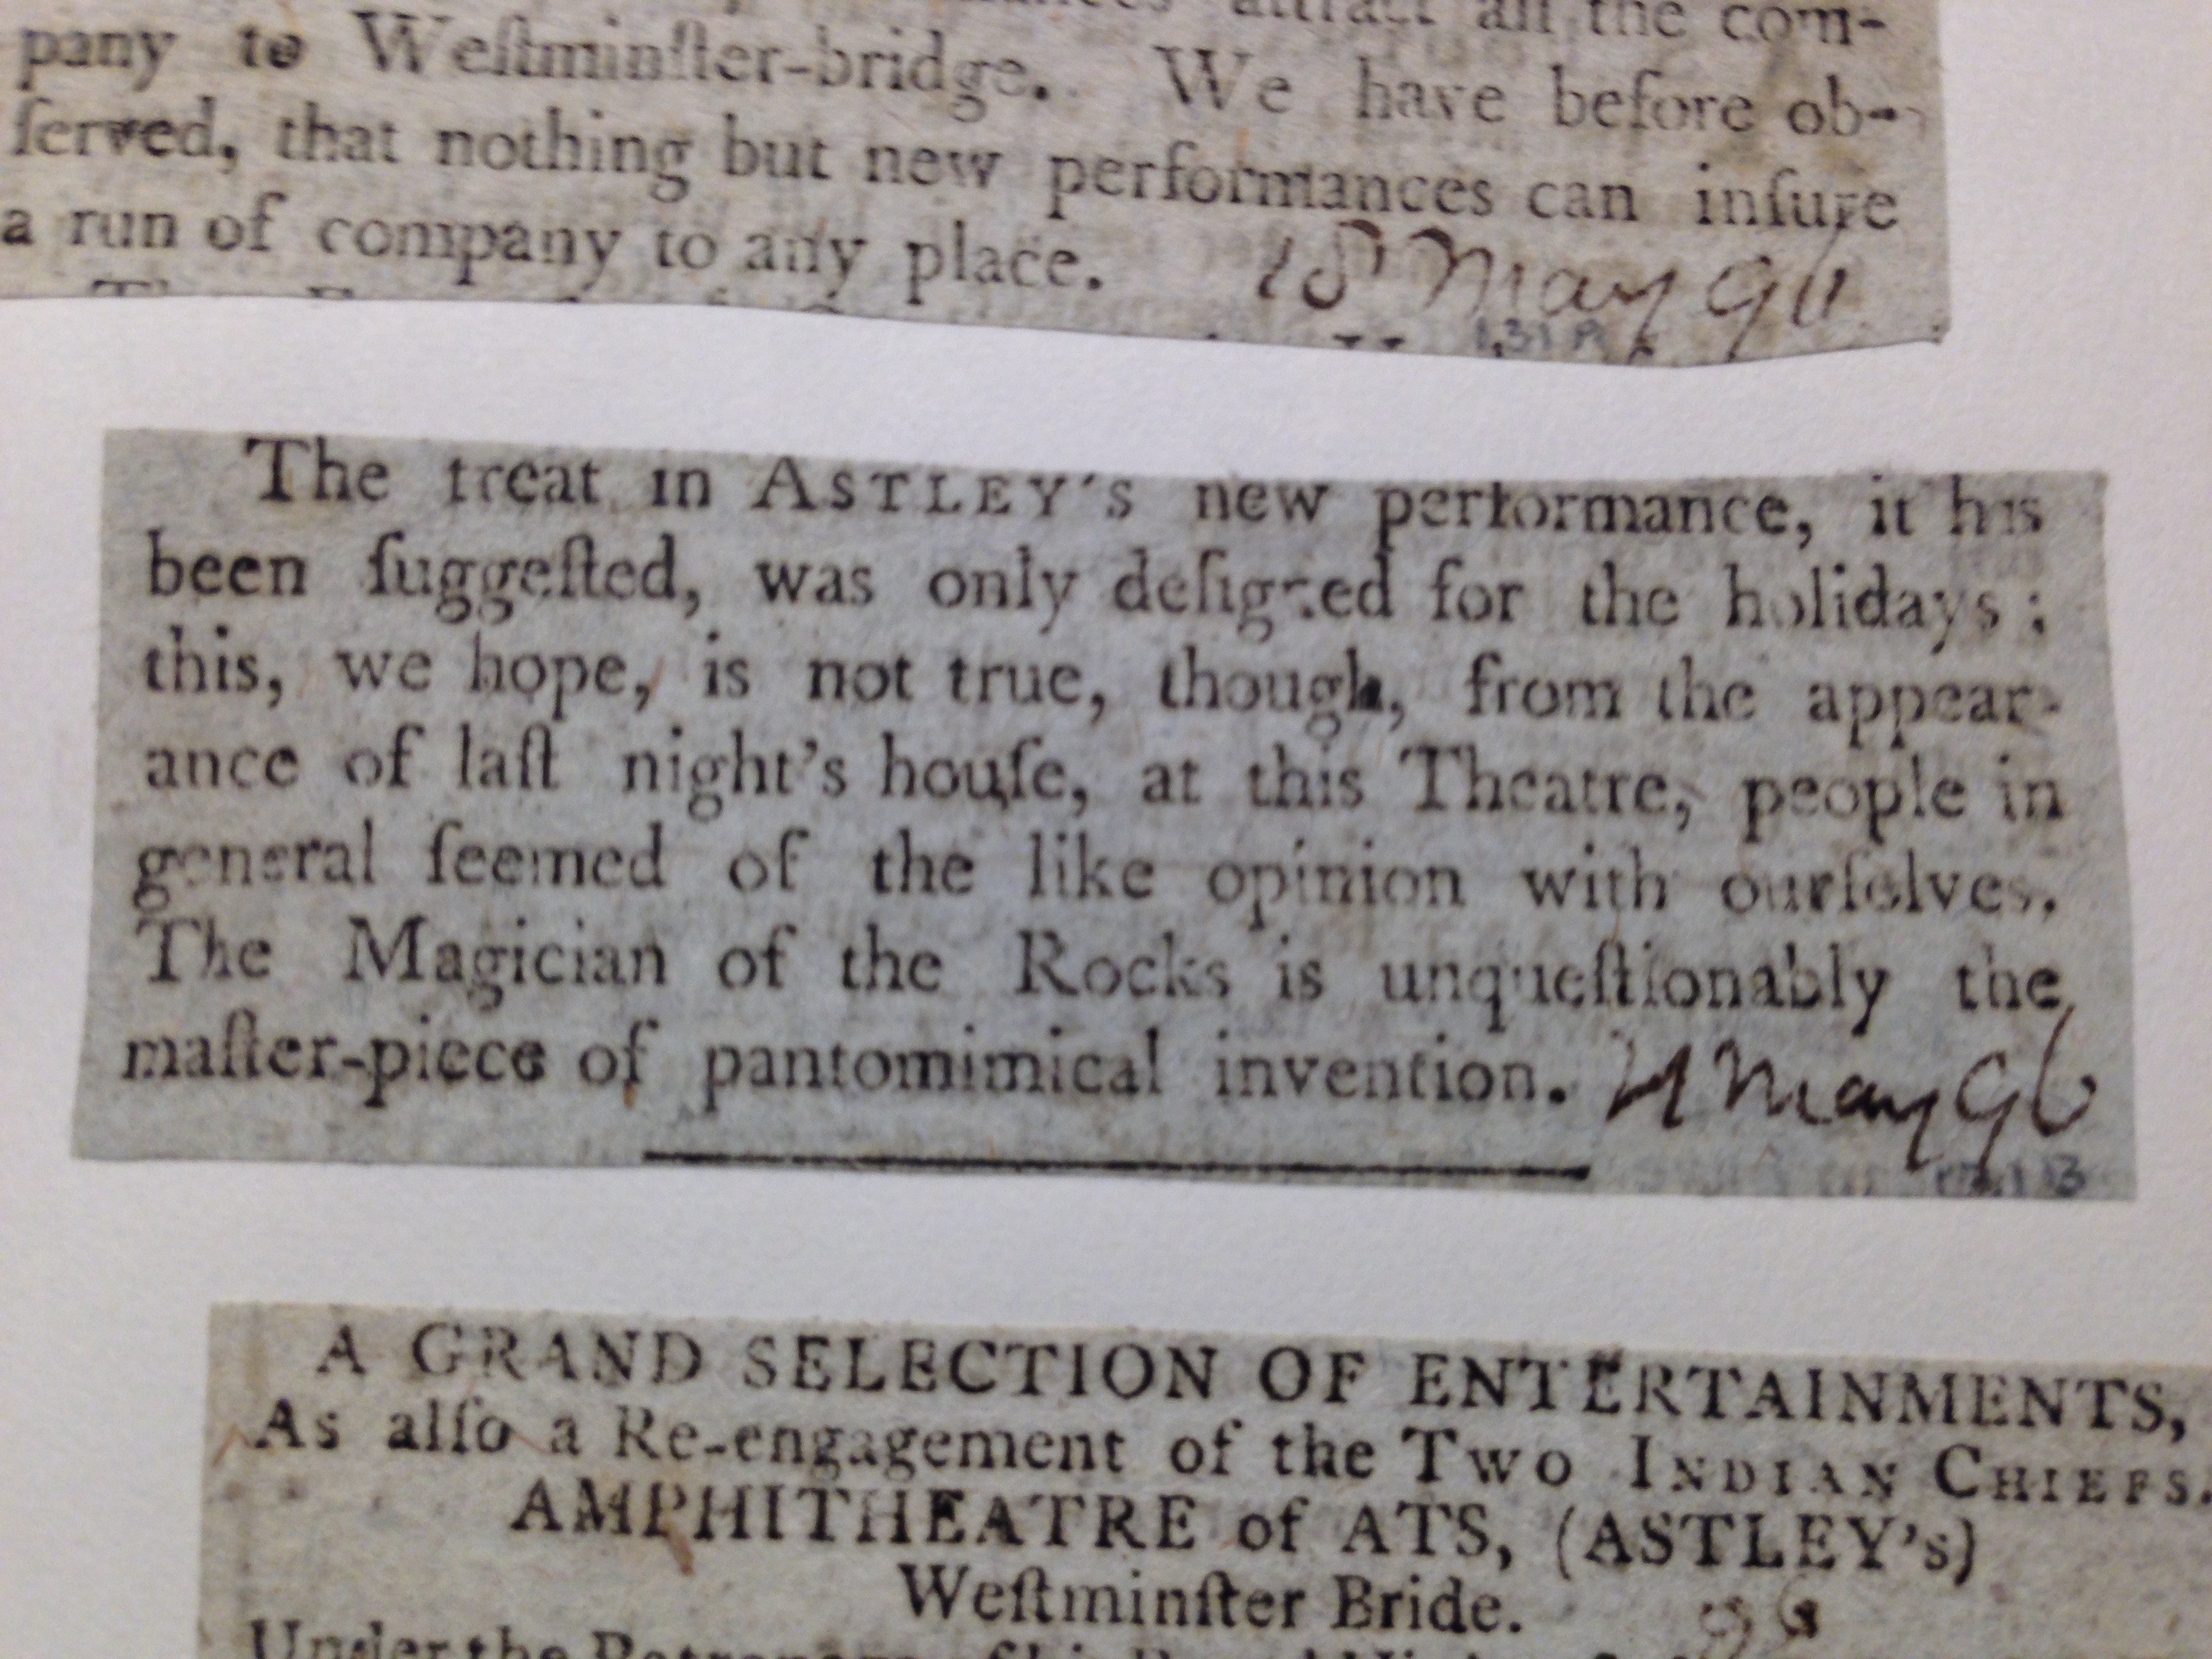 attract all the com-
pany to Weſtminſter-bridge. We have before ob-
ſerved, that nothing but new performances can inſure
a run of company to any place. 18 May 96
131 A
The treat in ASTLEY'S new performance, it has
been ſuggeſted, was only deſigned for the holidays;
this, we hope, is not true, though, from the appear-
ance of laſt night's houſe, at this Theatre, people in
general ſeemed of the like opinion with ourſelves.
The Magician of the Rocks is unqueſtionably the
maſter-piece of pantomimical invention. May 96
A GRAND SELECTION OF ENTERTAINMENTS,
As alſo a Re-engagement of the TWO INDIAN CHIEFS.
AMPHITHEATRE of ATS, (ASTLEY's)
Weſtminſter Bride. 96
Under the Patronage of his Royal